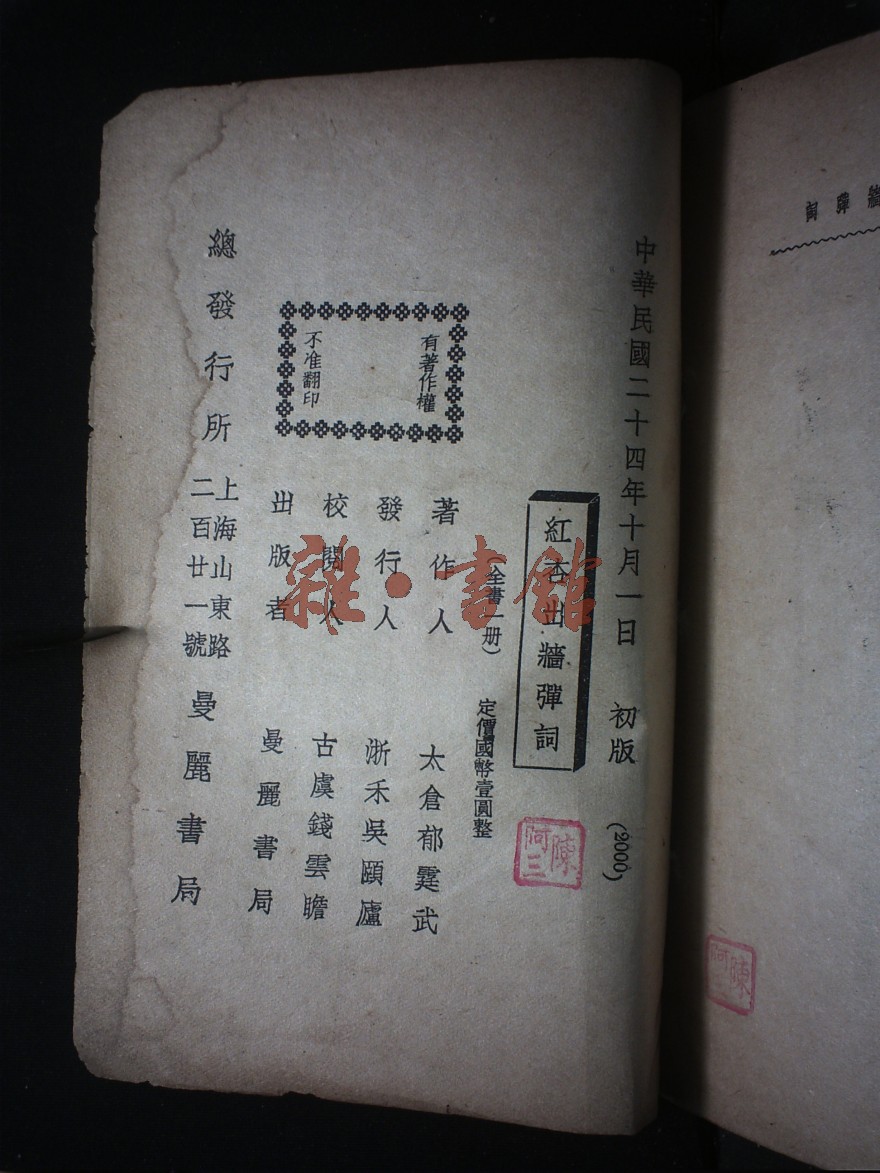 中華民國二十四年十月一日 初版 (2000)
紅杏出牆彈詞
(全書一册) 定價國幣壹圓整
著作人 太倉郁霆武
發行人 浙禾吳頤廬
校閱人 古虞錢雲瞻
出版者 曼麗書局
有著作權
不准翻印
總發行所 上海山東路二百廿一號 曼麗書局
陳阿三
雜·書館
牆彈詞
陳阿三